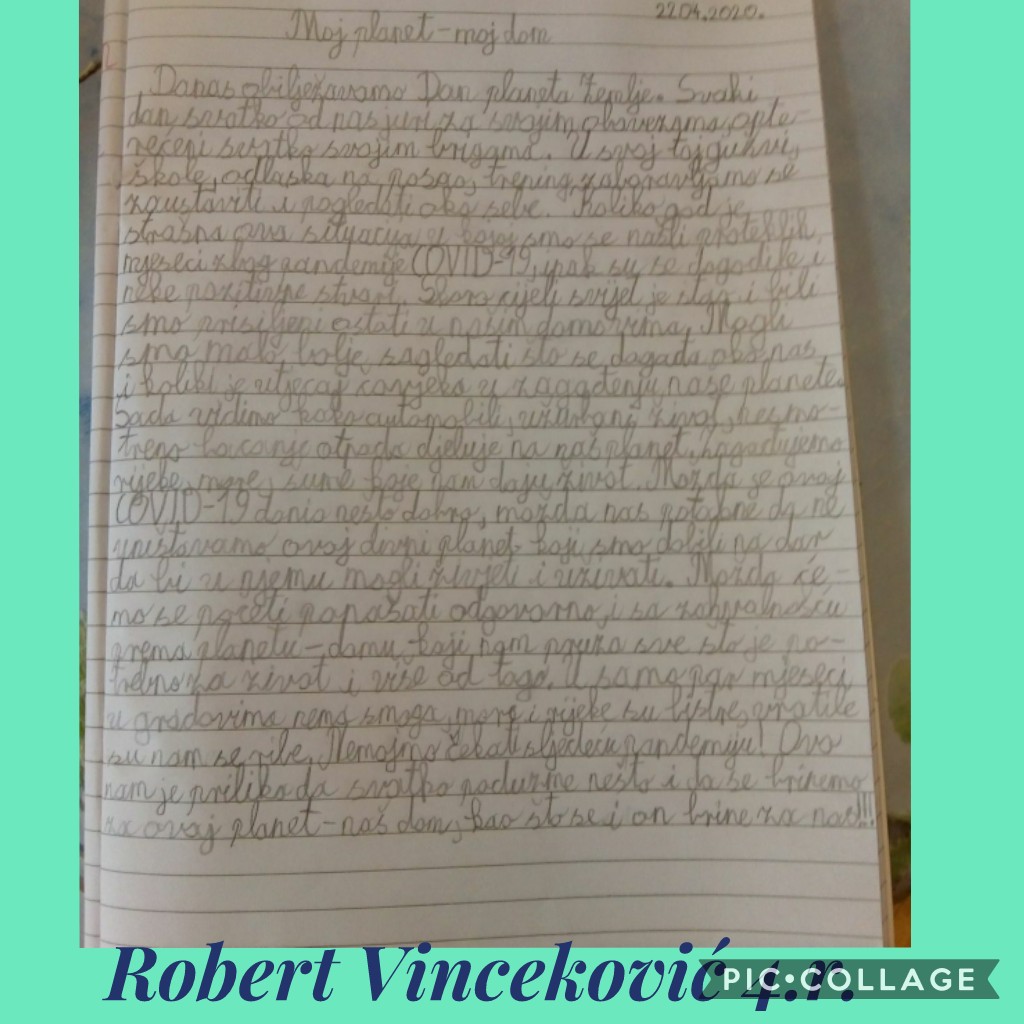 22.04.2020.
Moj planet - moj dom
Danas obilježavamo Dan planeta Zemlje. Svaki
dan svatko od nas juri za svojim obavezama, opte-
rećeni svatko svojim brigama. U svoj toj gužvi,
škole, odlaska na posao, trening, zaboravljamo se
zaustaviti i pogledati oko sebe. Koliko god je
strašna ova situacija u kojoj smo se našli proteklih
mjeseci zbog pandemije COVID-19, ipak su se dogodile i
neke pozitivne stvari. Skoro cijeli svijet je stao i bili
smo prisiljeni ostati u našim domovima. Mogli
smo malo bolje sagledati što se događa oko nas
i koliki je utjecaj čovjeka u zagađenju naše planete.
Sada vidimo kako automobili, užurbani život, nesmo-
treno bacanje otpada djeluje na naš planet. Zagađujemo
rijeke, more, šume koje nam daju život. Možda je ovaj
COVID-19 donio nešto dobro, možda nas potakne da ne
uništavamo ovaj divni planet koji smo dobili na dar
da bi u njemu mogli živjeti i uživati. Možda će-
mo se početi ponašati odgovorno, i sa zahvalnošću
prema planetu - domu, koji nam pruža sve što je po-
trebno za život i više od toga. U samo par mjeseci,
u gradovima nema smoga, more i rijeke su bistre, vratile
su nam se ribe. Nemojmo čekati sljedeću pandemiju! Ovo
nam je prilika da svatko poduzme nešto i da se brinemo
za ovaj planet - naš dom, kao što se i on brine za nas!!!
Robert Vinceković 4.r.
PIC•COLLAGE